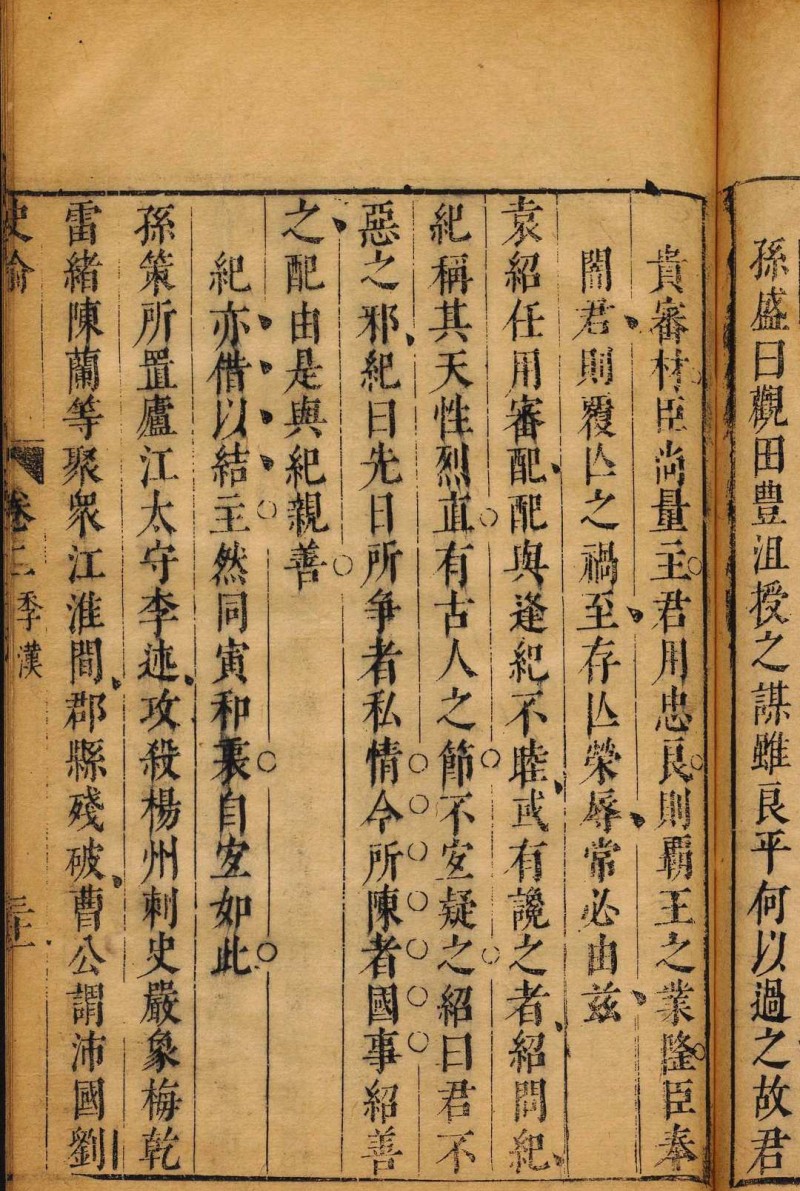 孫盛曰觀田豊沮授之謀雖良平何以過之故君
貴審材臣尚量主君用忠良則覇王之業隆臣奉
闇君則覆亾之禍至存亾榮辱常必由兹
袁紹任用審配配與逢紀不睦或有讒之者紹問紀
紀稱其天性烈直有古人之節不宐疑之紹曰君不
惡之邪紀曰先日所争者私情今所陳者國事紹善
之配由是與紀親善
紀亦借以結主然同寅和裏自宐如此
孫策所置廬江太守李述攻殺楊州刺史嚴象梅乾
雷緒陳蘭等聚衆江淮間郡縣殘破曹公謂沛國劉
史論 卷二 季漢